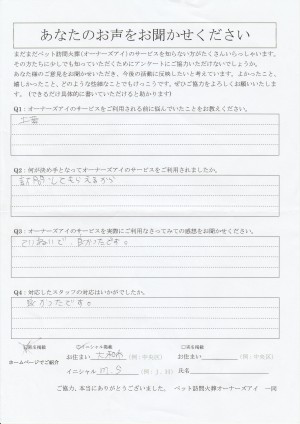 あなたのお声をお聞かせください
まだまだペット訪問火葬(オーナーズアイ)のサービスを知らない方がたくさんいらっしゃいます。
その方たちに少しでも知っていただくためにアンケートにご協力いただけないでしょうか。
あなた様のご意見をお聞かせいただき、今後の活動に反映したいと考えています。よかったこと、
嬉しかったこと、どのような些細なことでもけっこうです。ぜひご協力をよろしくお願いいたしま
す。(できるだけ具体的に書いていただけると助かります)
Q1:オーナーズアイのサービスをご利用される前に悩んでいたことをお教えください。
Q2:何が決め手となってオーナーズアイのサービスをご利用されましたか。
訪問してもらえるから
Q3:オーナーズアイのサービスを実際にご利用なさってみての感想をお聞かせください。
ていねいで、良かったです。
Q4:対応したスタッフの対応はいかがでしたか。
良かったです。
ホームページでご紹介
○イニシャル掲載
お住まい 大和市 (例:中央区)
イニシャル M.S (例:J.H)
お住まい (例:中央区)
氏名
ご協力、本当にありがとうございました。 ペット訪問火葬オーナーズアイ 一同